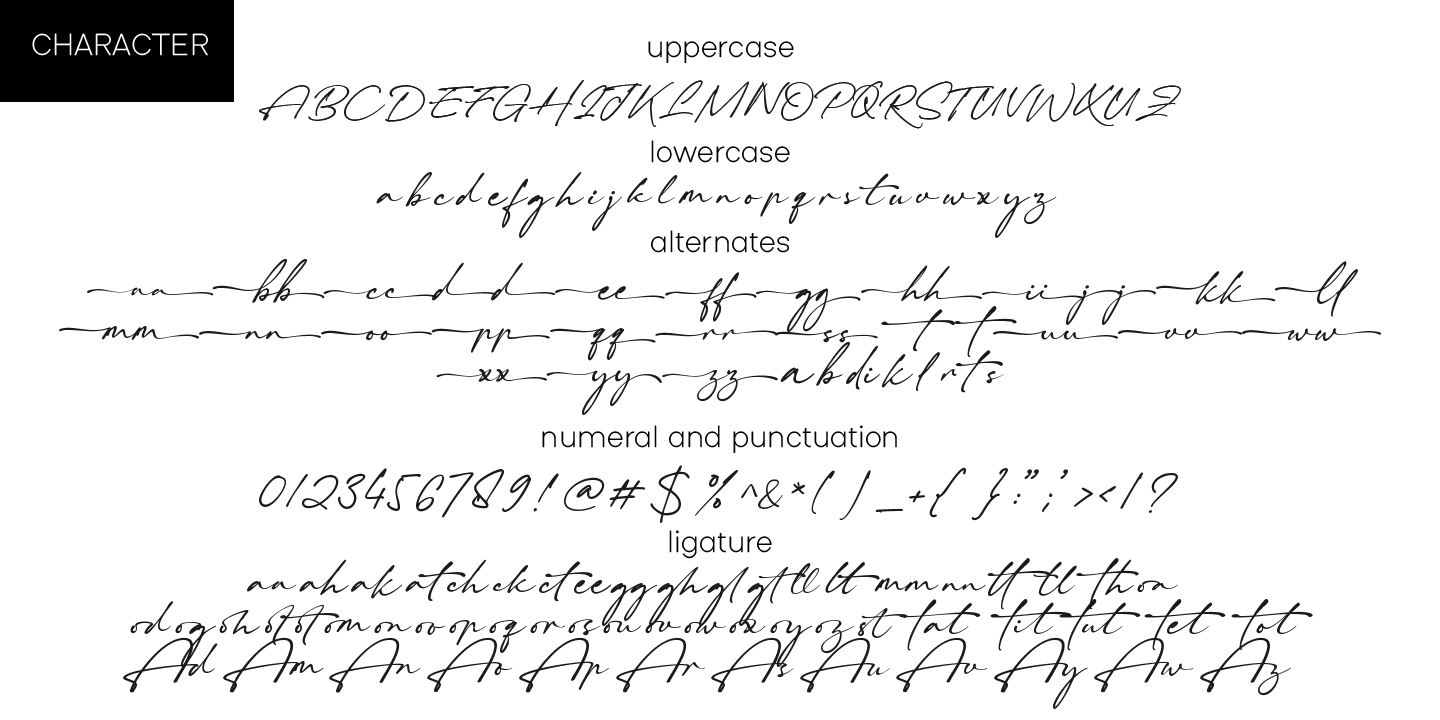 CHARACTER
uppercase
ABCDEFGHIJKLMNOPQRSTUVWXYZ
lowercase
abcdefghijklmnopqrstuvwxyz
alternates
aa bb cc d d ee ff gg hh ii j j kk ll
mm nn oo pp qq rr ss t t uu vv ww
xx yy zz a b d i k l r t s
numeral and punctuation
0123456789!@#$%^&*( )_+{ }:”;’><|?
ligature
an ah ak at ch ck ct ee gg gh gl gt ll lt mm nn tt tl th oa
od og oh of ot om on oo op oq or os ou ov ow ox oy oz st tat tit tut tet tot
Ad Am An Ao Ap Ar As Au Av Ay Aw Az